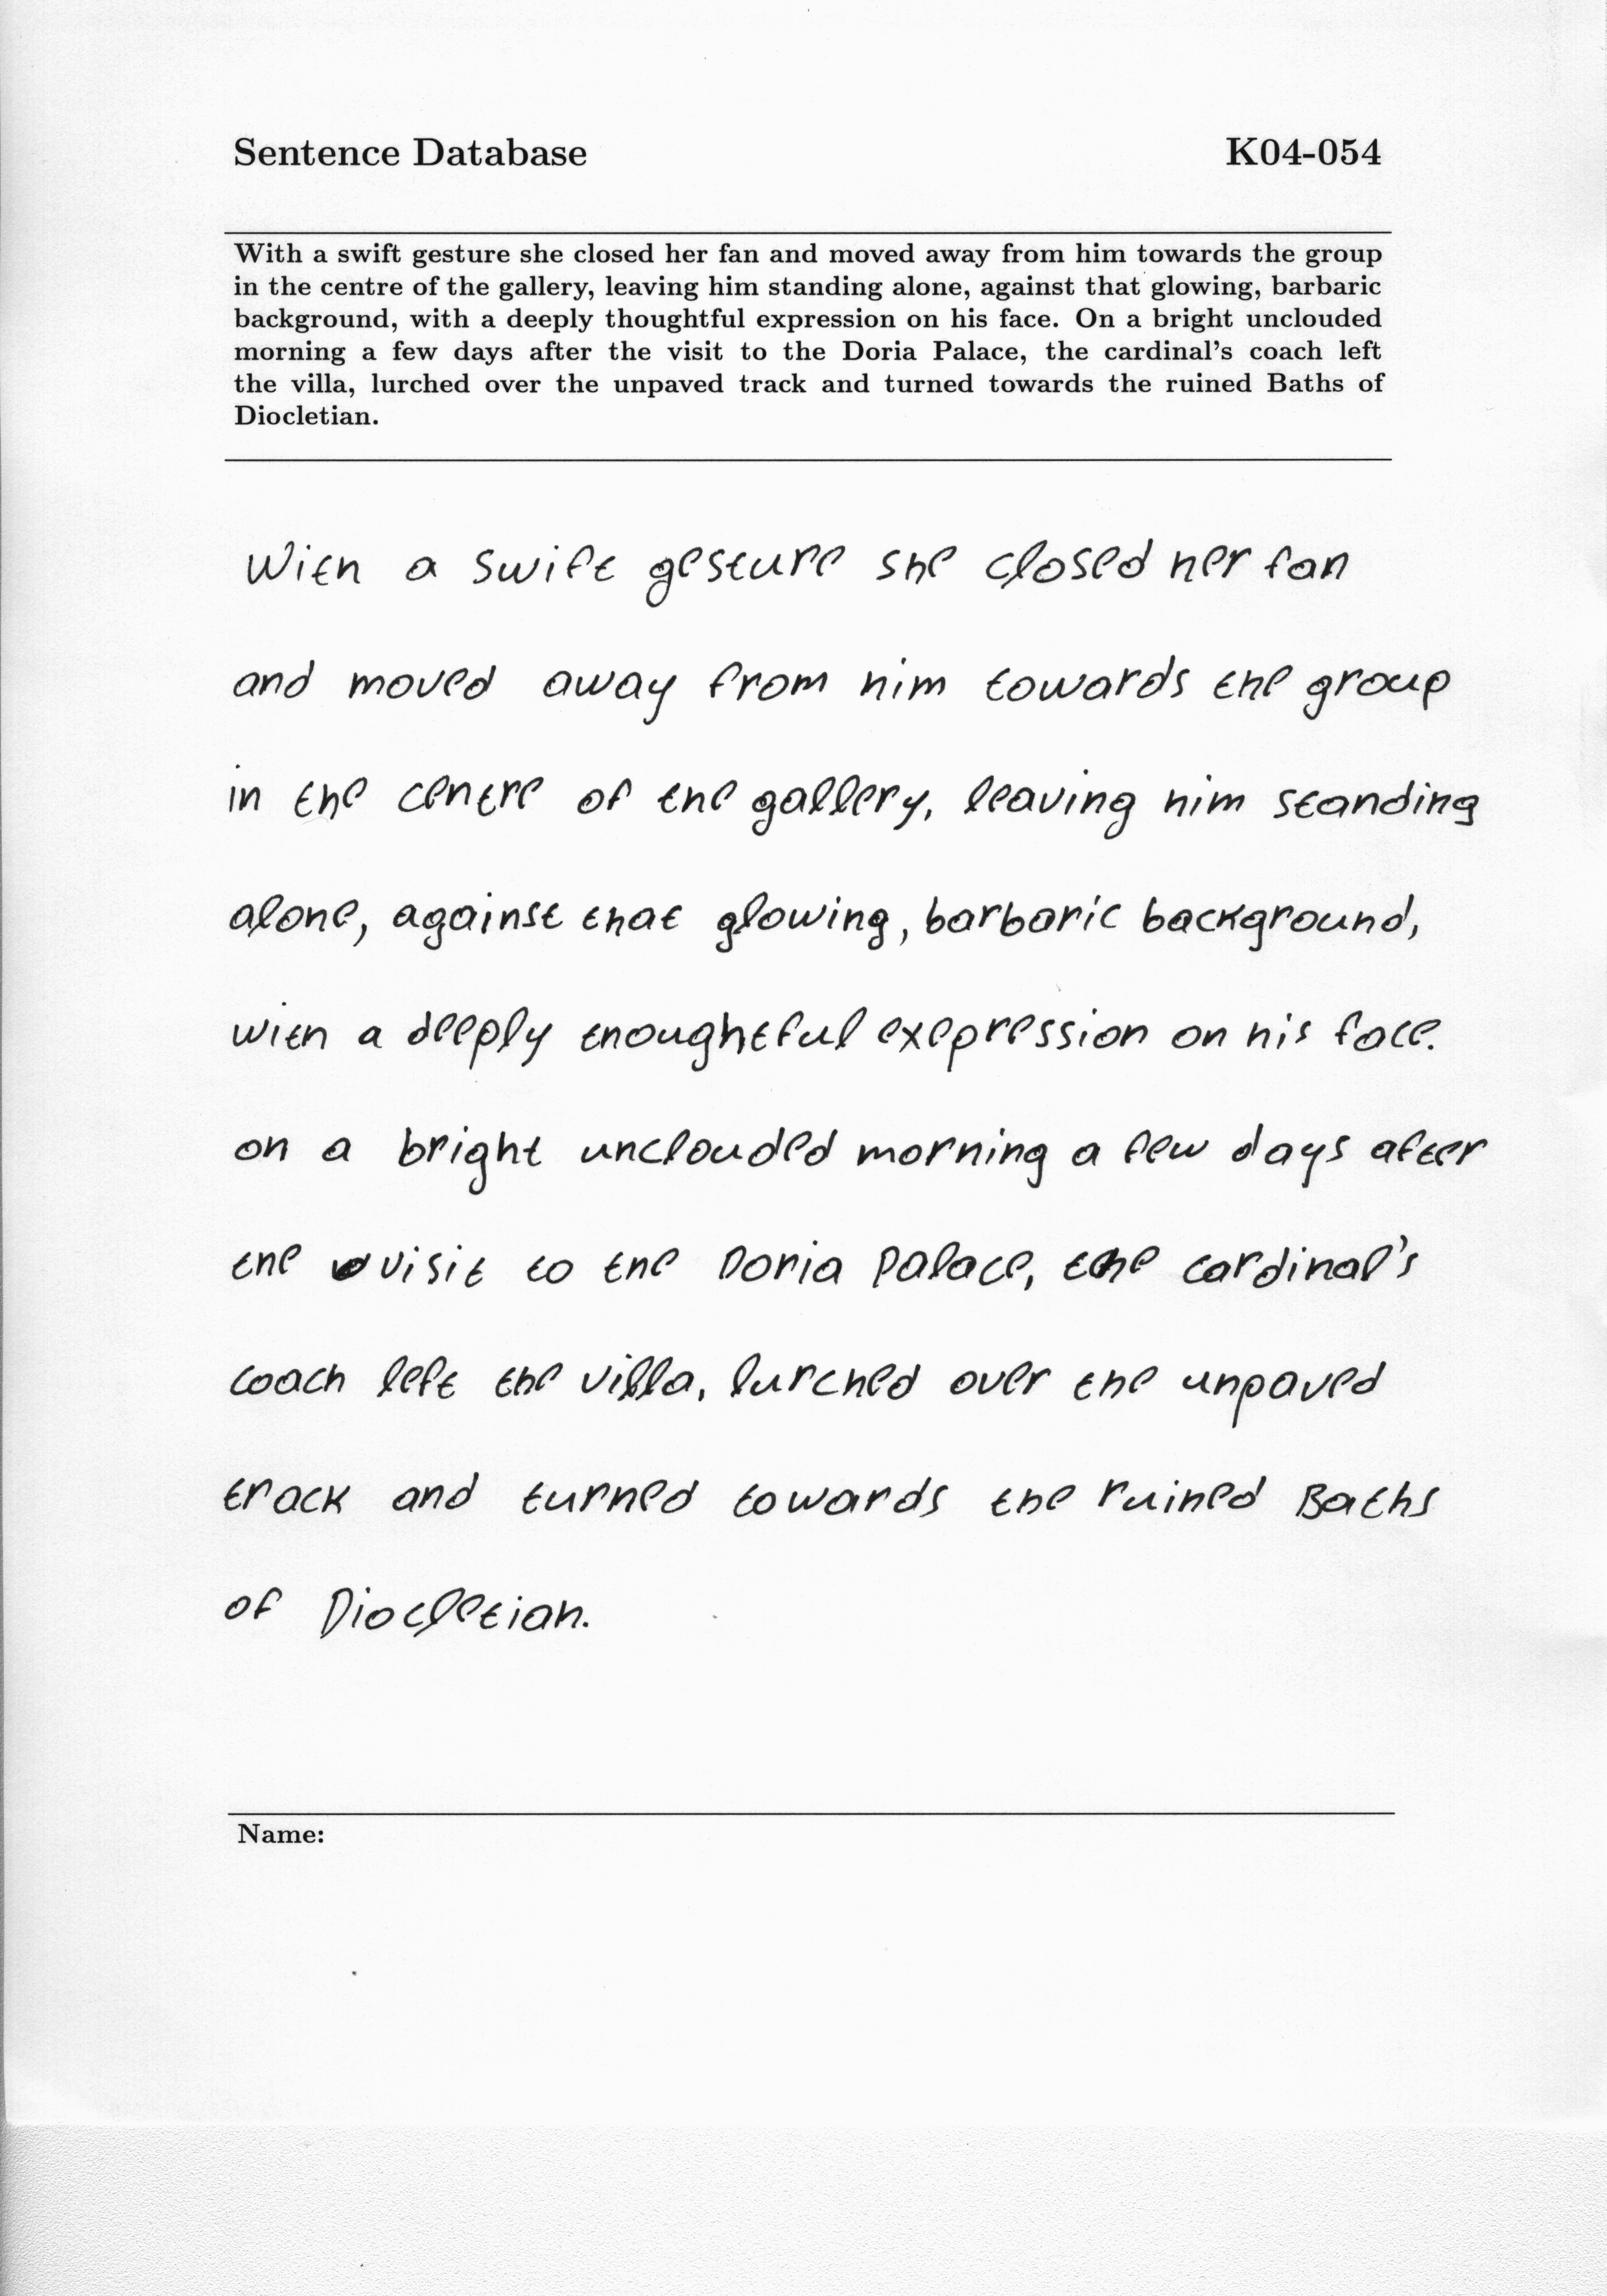 Sentence Database K04-054
With a swift gesture she closed her fan and moved away from him towards the group
in the centre of the gallery, leaving him standing alone, against that glowing, barbaric
background, with a deeply thoughtful expression on his face. On a bright unclouded
morning a few days after the visit to the Doria Palace, the cardinal's coach left
the villa, lurched over the unpaved track and turned towards the ruined Baths of
Diocletian.
With a swift gesture she closed her fan
and moved away from him towards the group
in the centre of the gallery, leaving him standing
alone, against that glowing, barbaric background,
with a deeply thoughtful exepression on his face.
on a bright unclouded morning a few days after
the visit to the Doria Palace, the cardinal's
coach left the villa, lurched over the unpaved
track and turned towards the ruined Baths
of Diocletian.
Name: